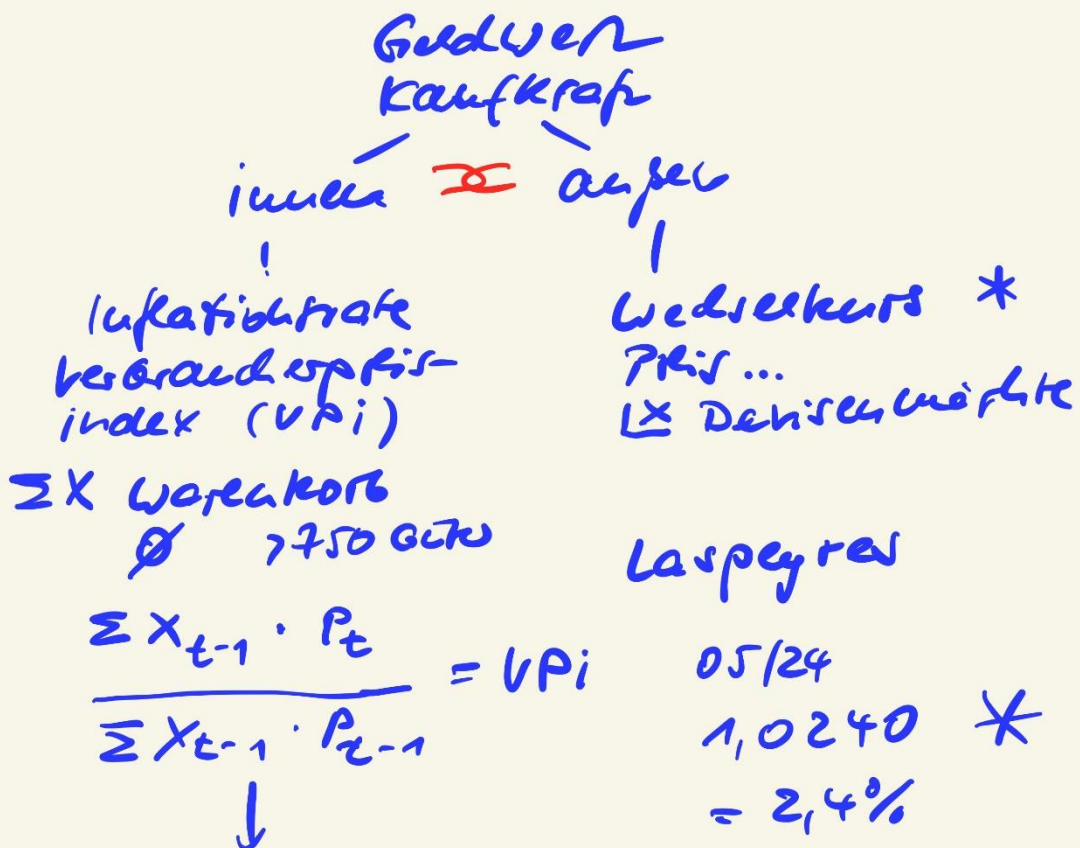 Geldwert
Kaufkraft
innen außen
Inflationsrate
Verbraucherpreis-
index (VPi)
ΣX Warenkorb
Ø >750 Güter
Σ X_{t-1} · P_t
= VPi
Σ X_{t-1} · P_{t-1}
Wechselkurs *
Preis ...
Devisenmärkte
Laspeyres
05/24
1,0240 *
= 2,4%